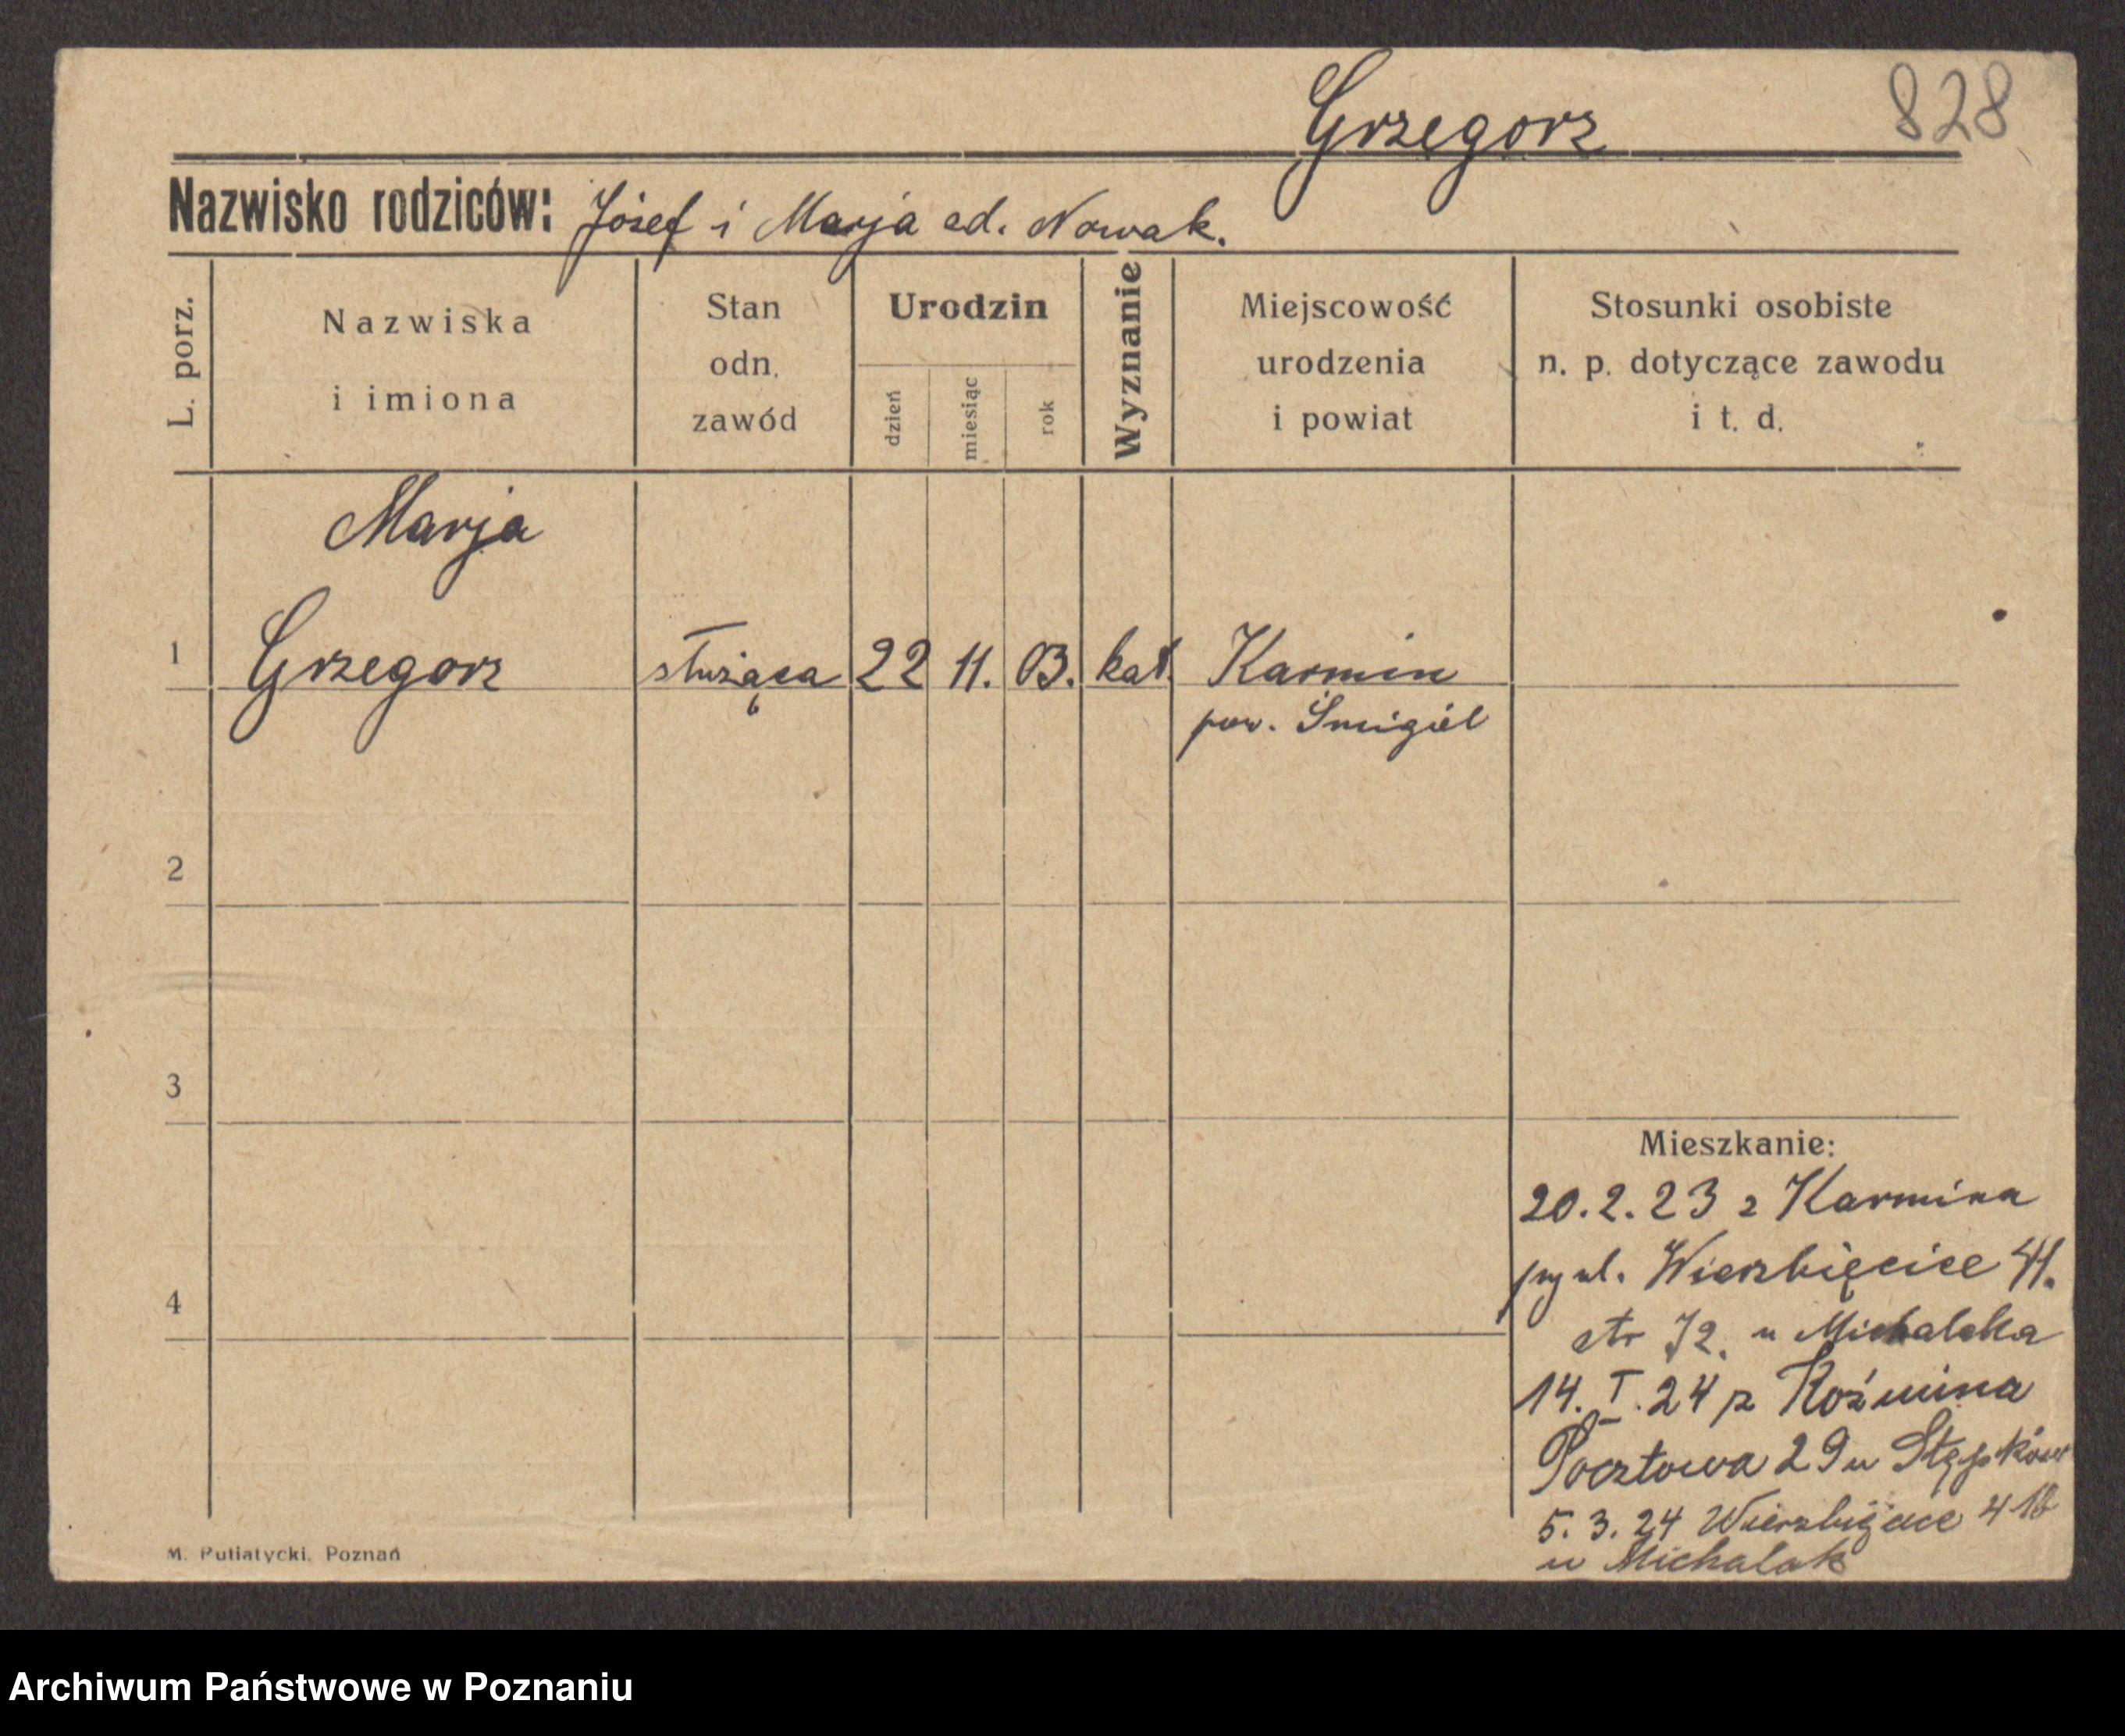 Grzegorz
828
Nazwisko rodziców: Józef i Marja ed. Nowak.
L. porz.
Nazwiska
i imiona
Stan
odn.
zawód
Urodzin
dzień
miesiąc
rok
Wyznanie
Miejscowość
urodzenia
i powiat
Stosunki osobiste
n. p. dotyczące zawodu
i t. d.
Marja
1 Grzegorz służąca 22 11. 03. kat. Karmin
pow. Śmigiel
2
3
4
Mieszkanie:
20.2.23 z Karmina
ul. Wierzbięcice 41.
str 72. u Michalaka
14. I. 24 z Koźmina
Pocztowa 29 u
5. 3. 24 Wierzbięcice
u Michalak
M. Putiatycki. Poznań
Archiwum Państwowe w Poznaniu